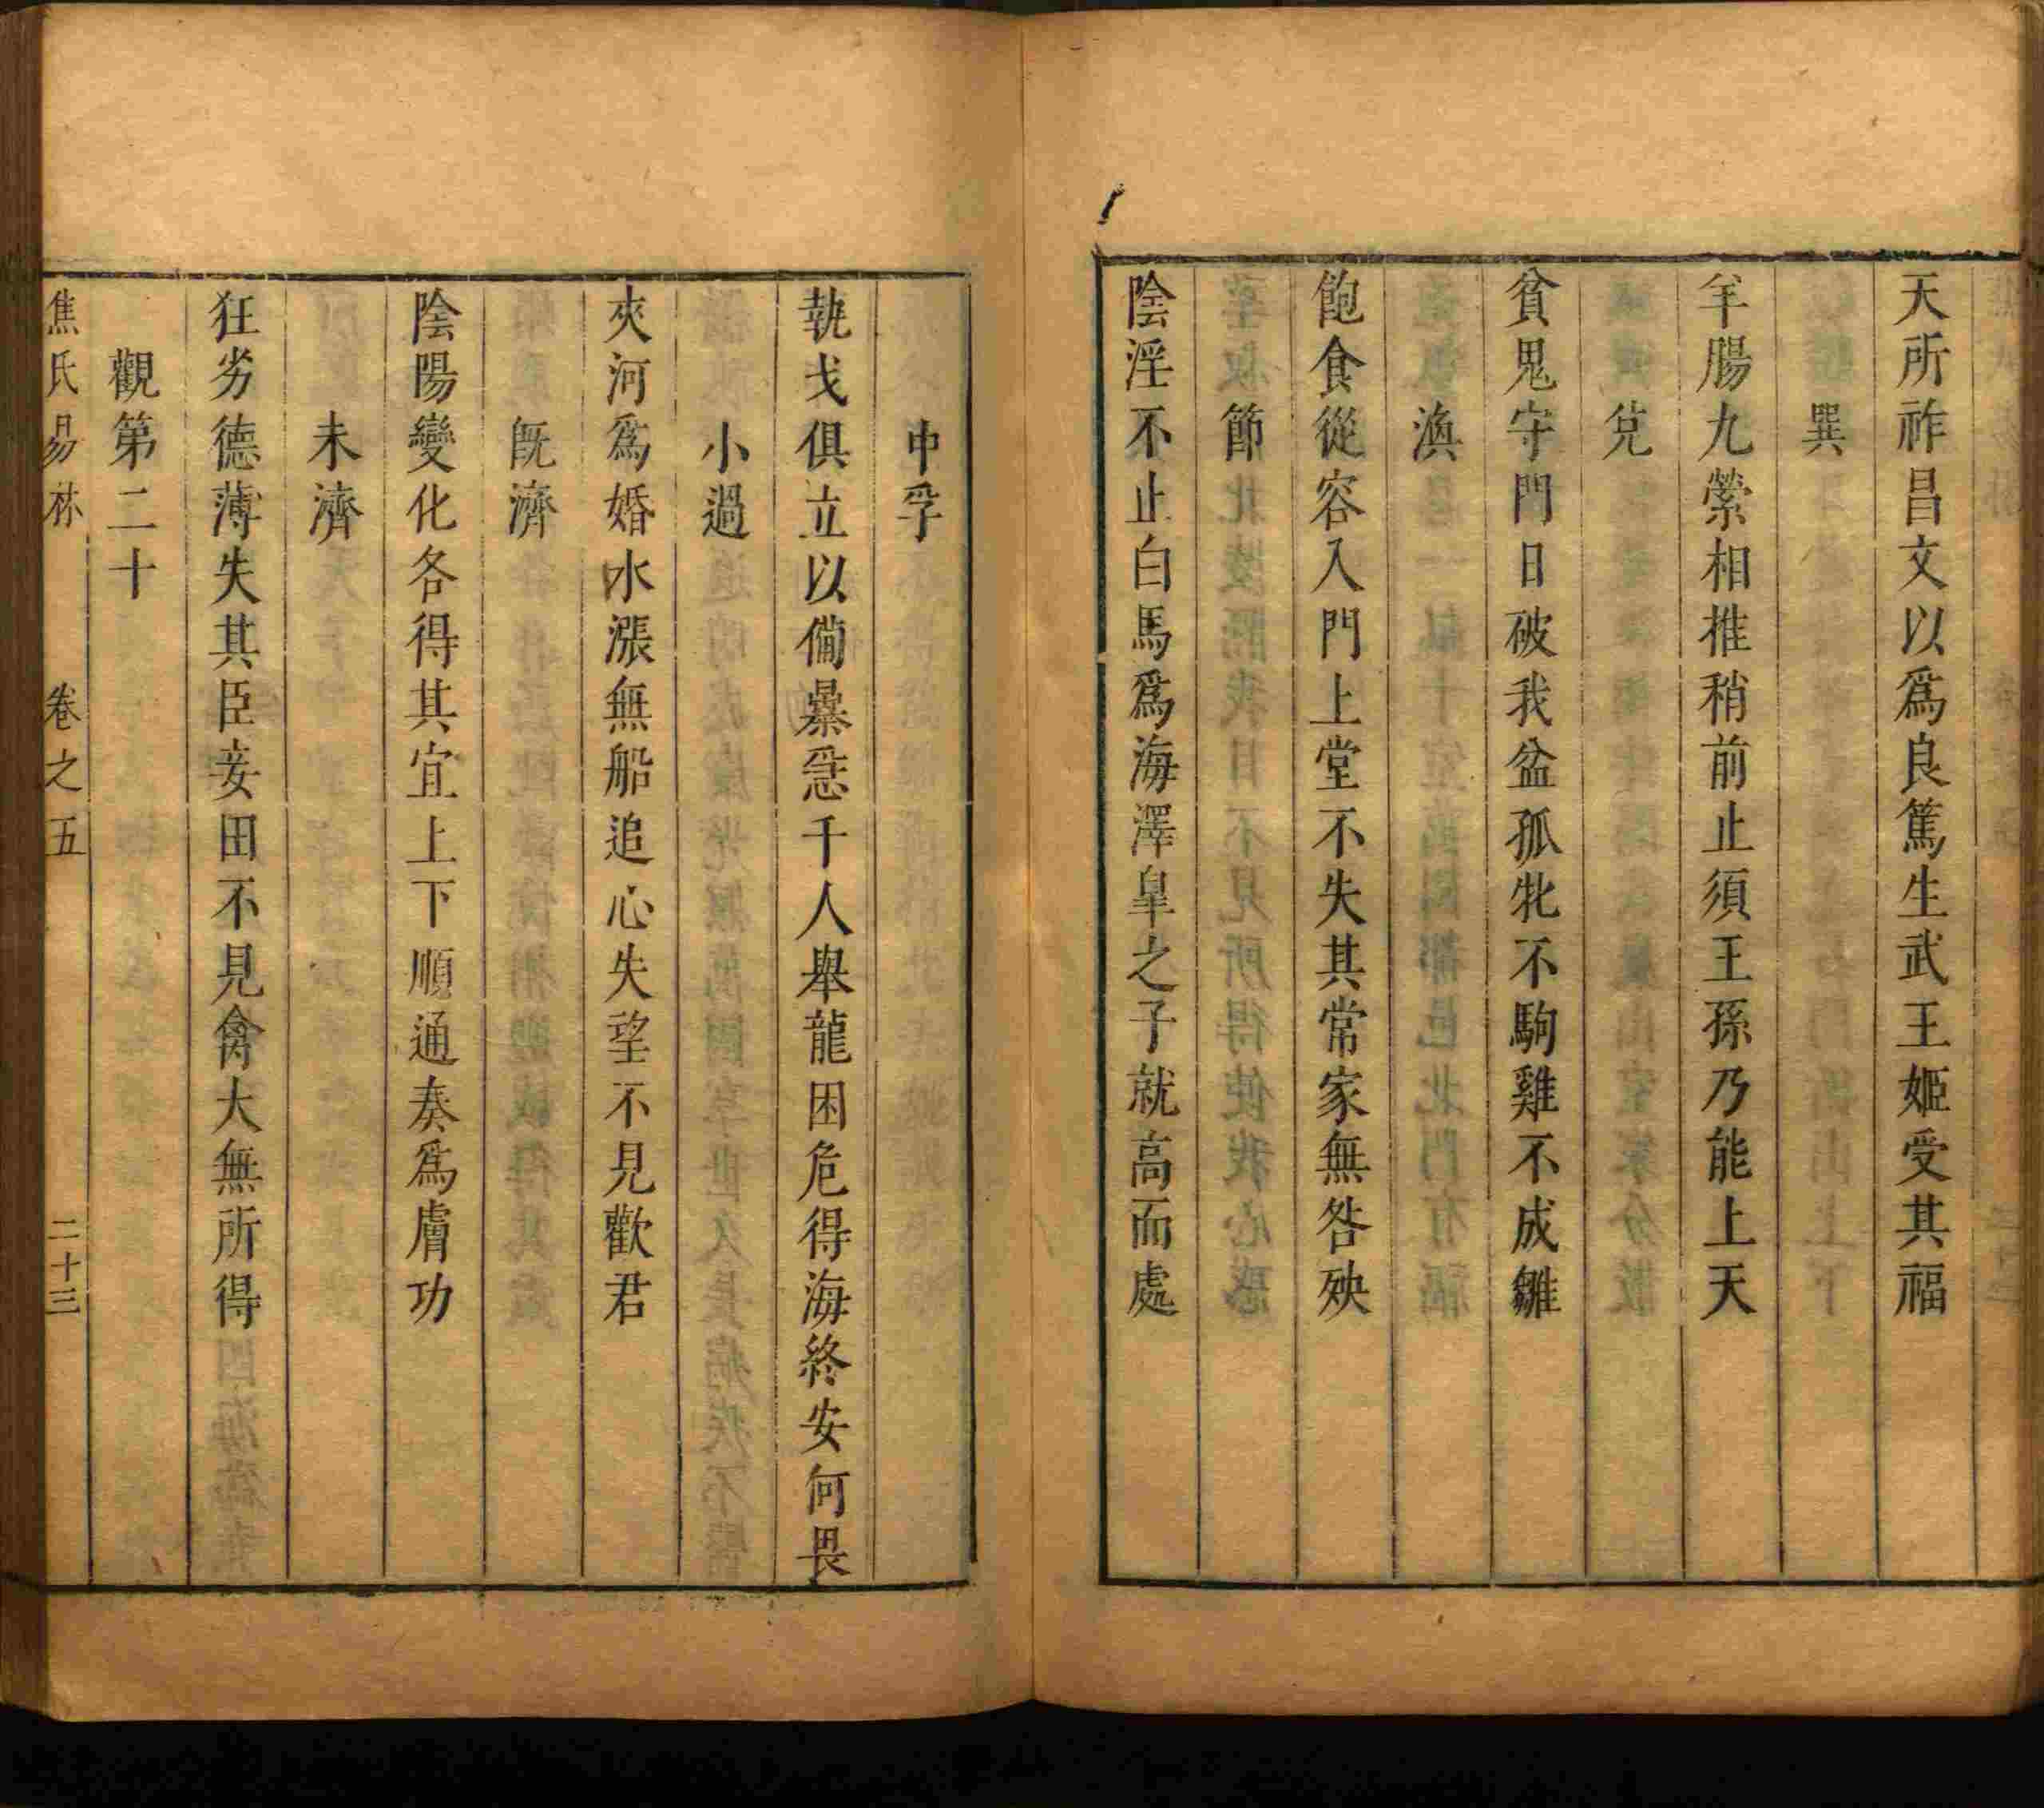 天所祚昌文以爲良篤生武王姬受其福
巽
羊腸九縈相推稍前止須王孫乃能上天
兌
貧鬼守門日破我盆孤牝不駒雞不成雛
渙
飽食從容入門上堂不失其常家無咎殃
節
陰淫不止白馬爲海澤皐之子就高而處
中孚
執戈俱立以備暴急千人舉龍困危得海終安何畏
小過
夾河爲婚水漲無船追心失望不見歡君
旣濟
陰陽變化各得其宜上下順通奏爲膚功
未濟
狂劣德薄失其臣妾田不見禽大無所得
觀第二十
焦氏易林 卷之五 二十三